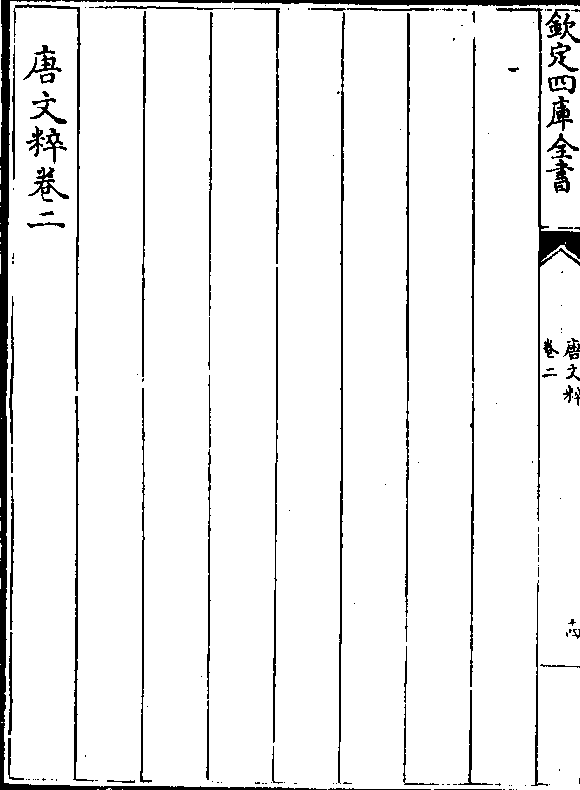 欽定四庫全書
唐文粹
卷二
十四
唐文粹卷二